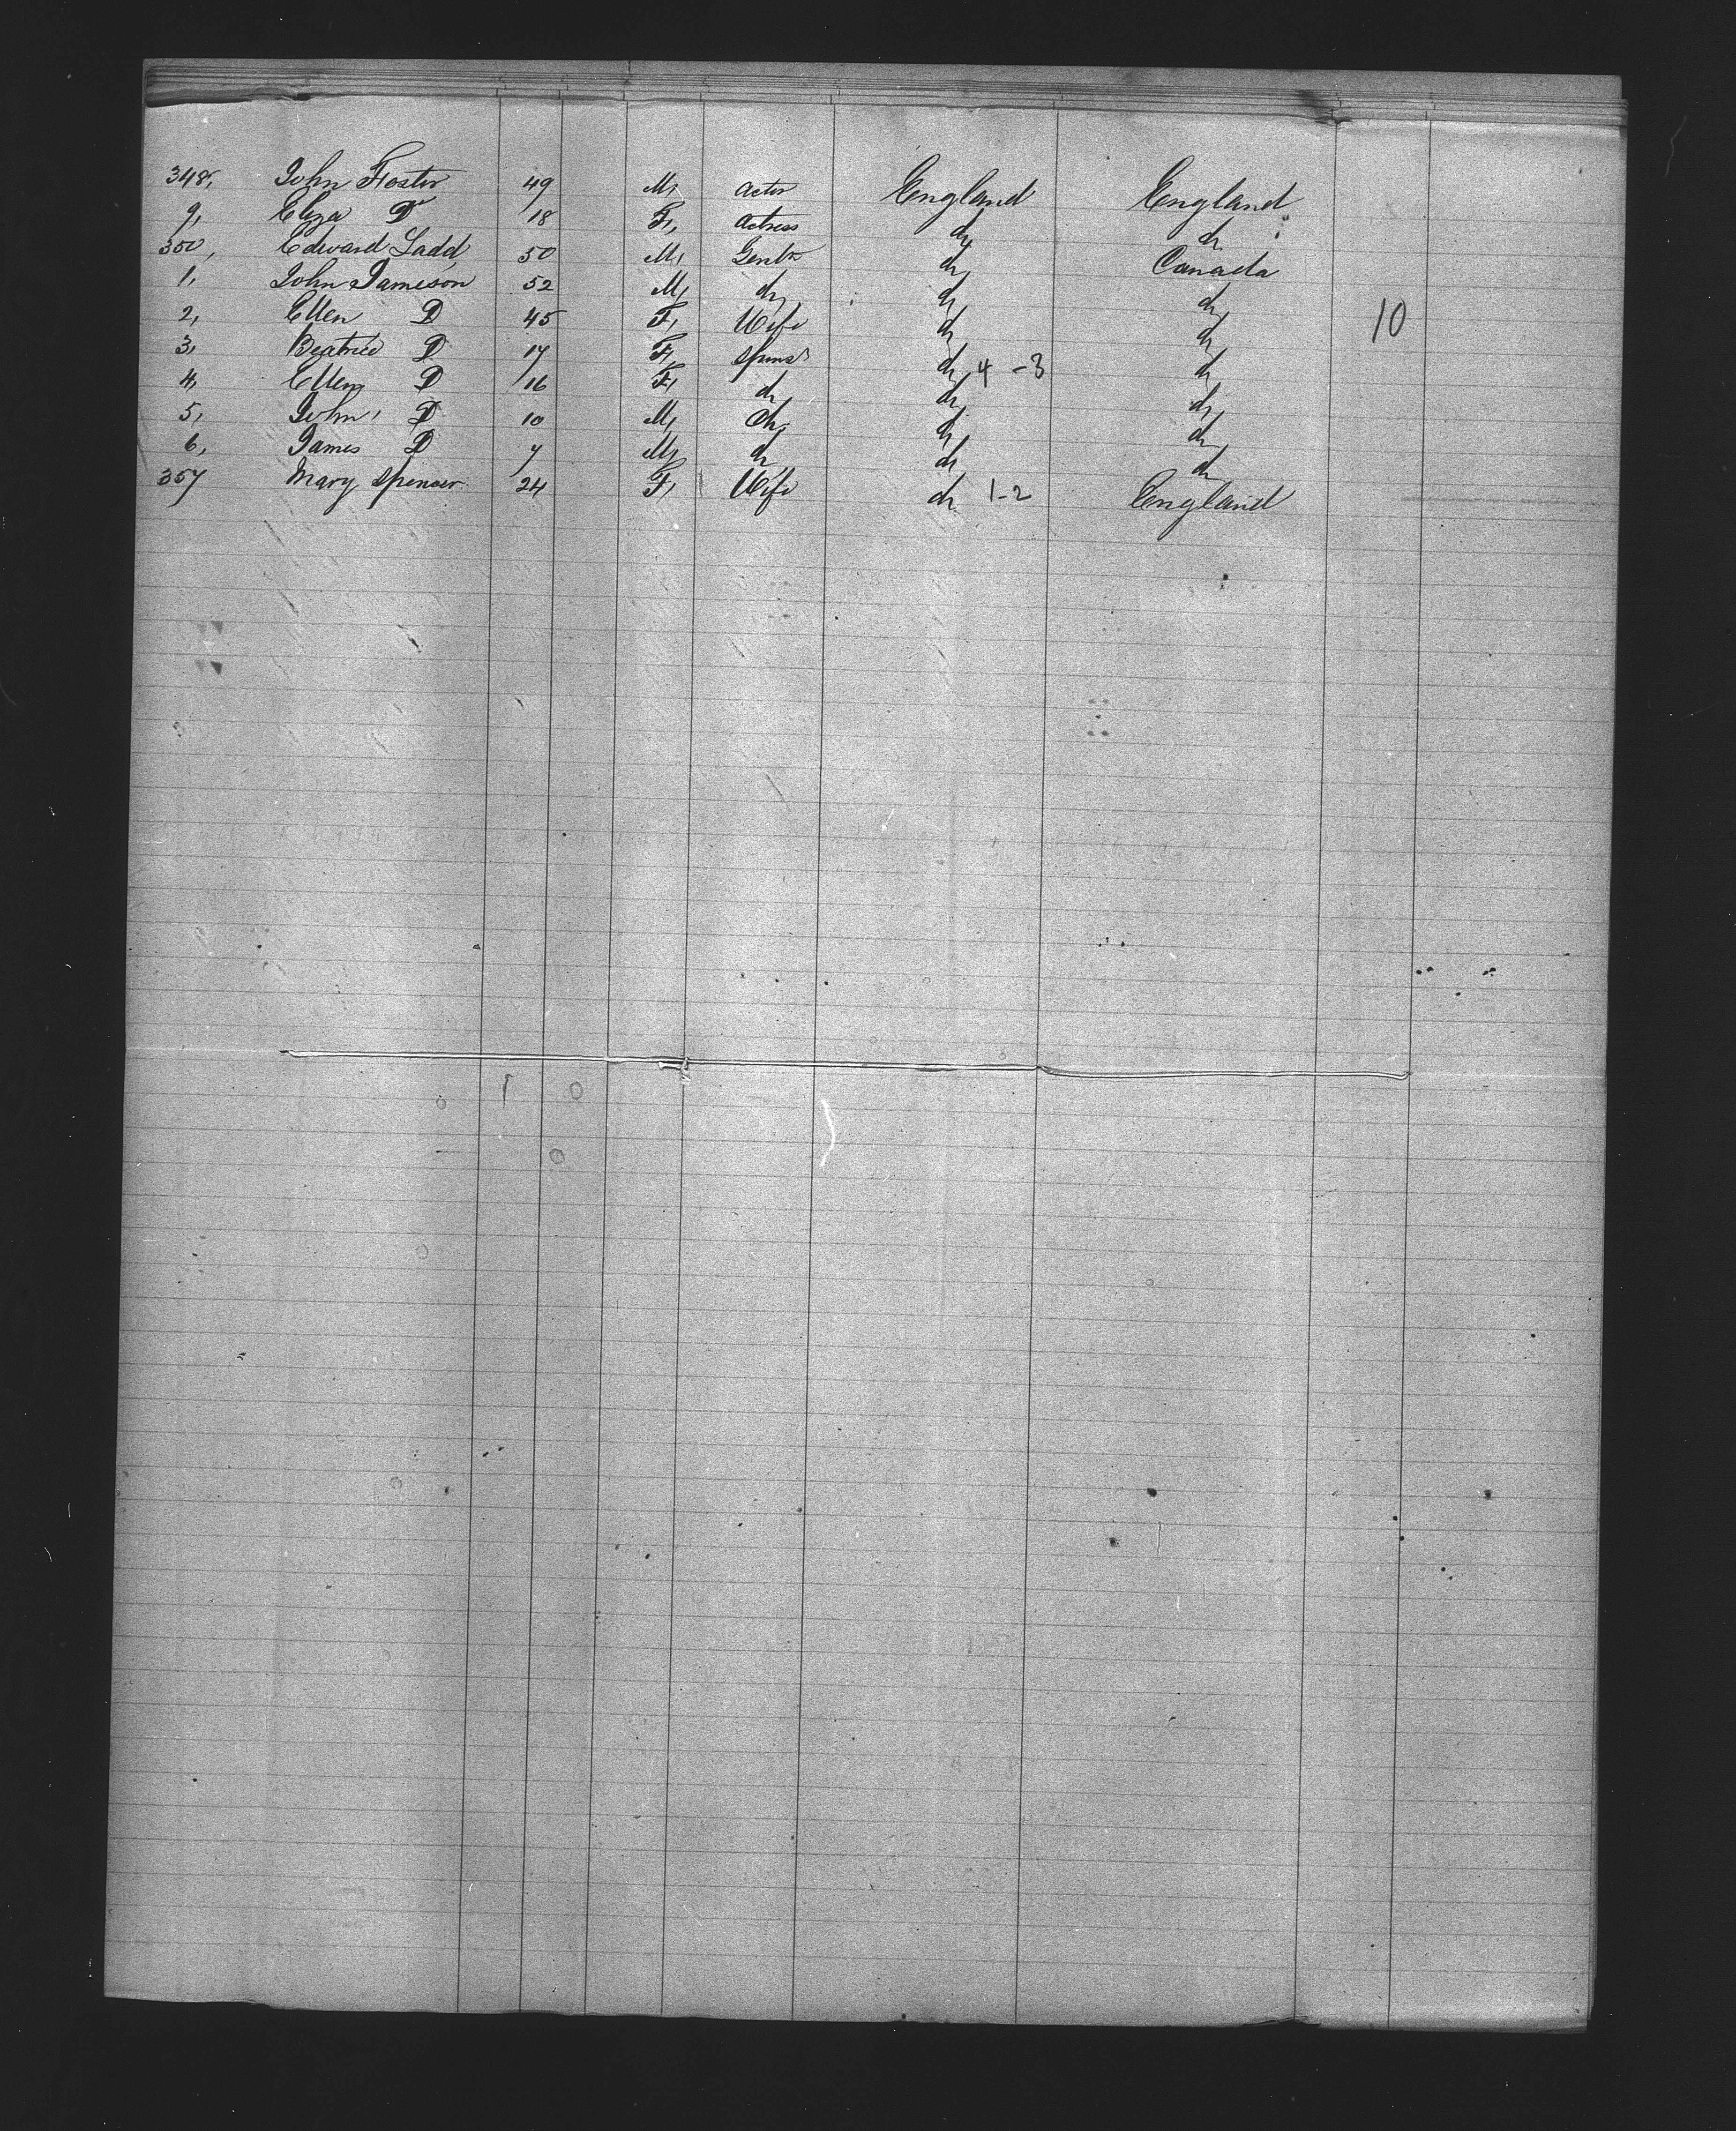 348, John Foster 49 M, actor England England
9, Eliza Do 18 F, actress do do
350, Edward Ladd 50 M, Gentn do Canada
1, John Jameson 52 M, do do do
2, Ellen D 45 F, Wife do do 10
3, Beatrice D 17 F, Spinsr do 4 - 3 do
4, Ellen D 16 F, do do do
5, John D 10 M, Ch, do do
6, James D 7 M, do do do
357 Mary Spencer 24 F, Wife do 1-2 England